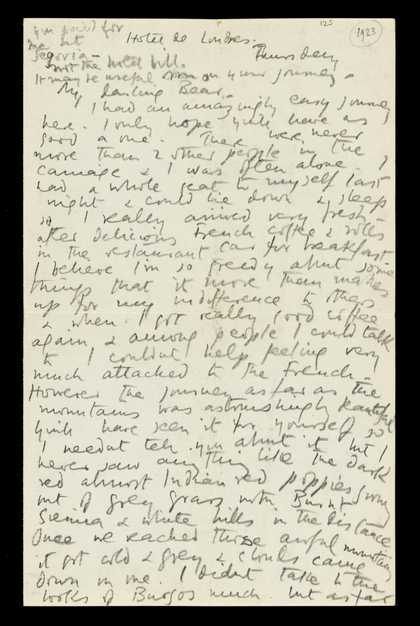 125
1923
me but
Segovia –
not the hotel bill.
It may be useful on your journey.
Hotel de Londres.
Thursday
My darling Bear.
I had an amazingly easy journey
here. I only hope you'll have as
good a one. There were never
more than 2 other people in the
carriage & I was often alone. I
had a whole seat to myself last
night & could lie down & sleep
so I really arrived very fresh –
after delicious French coffee & rolls
in the restaurant car for breakfast.
I believe I'm so greedy about some
things that it more than makes
up for my indifference to others
& when I got really good coffee
again & among people I could talk
to I couldn't help feeling very
much attached to the French –
However the journey as far as the
mountains was astonishingly beautiful
you'll have seen it for yourself so
I needn't tell you about it but I
never saw anything like the dark
red almost Indian red poppies
out of grey grass with Burnt
Sienna & white hills in the distance
Once we reached those awful mountains
it got cold & grey & clouds came
down on me. I didn't take to the
looks of Burgos much. but as far